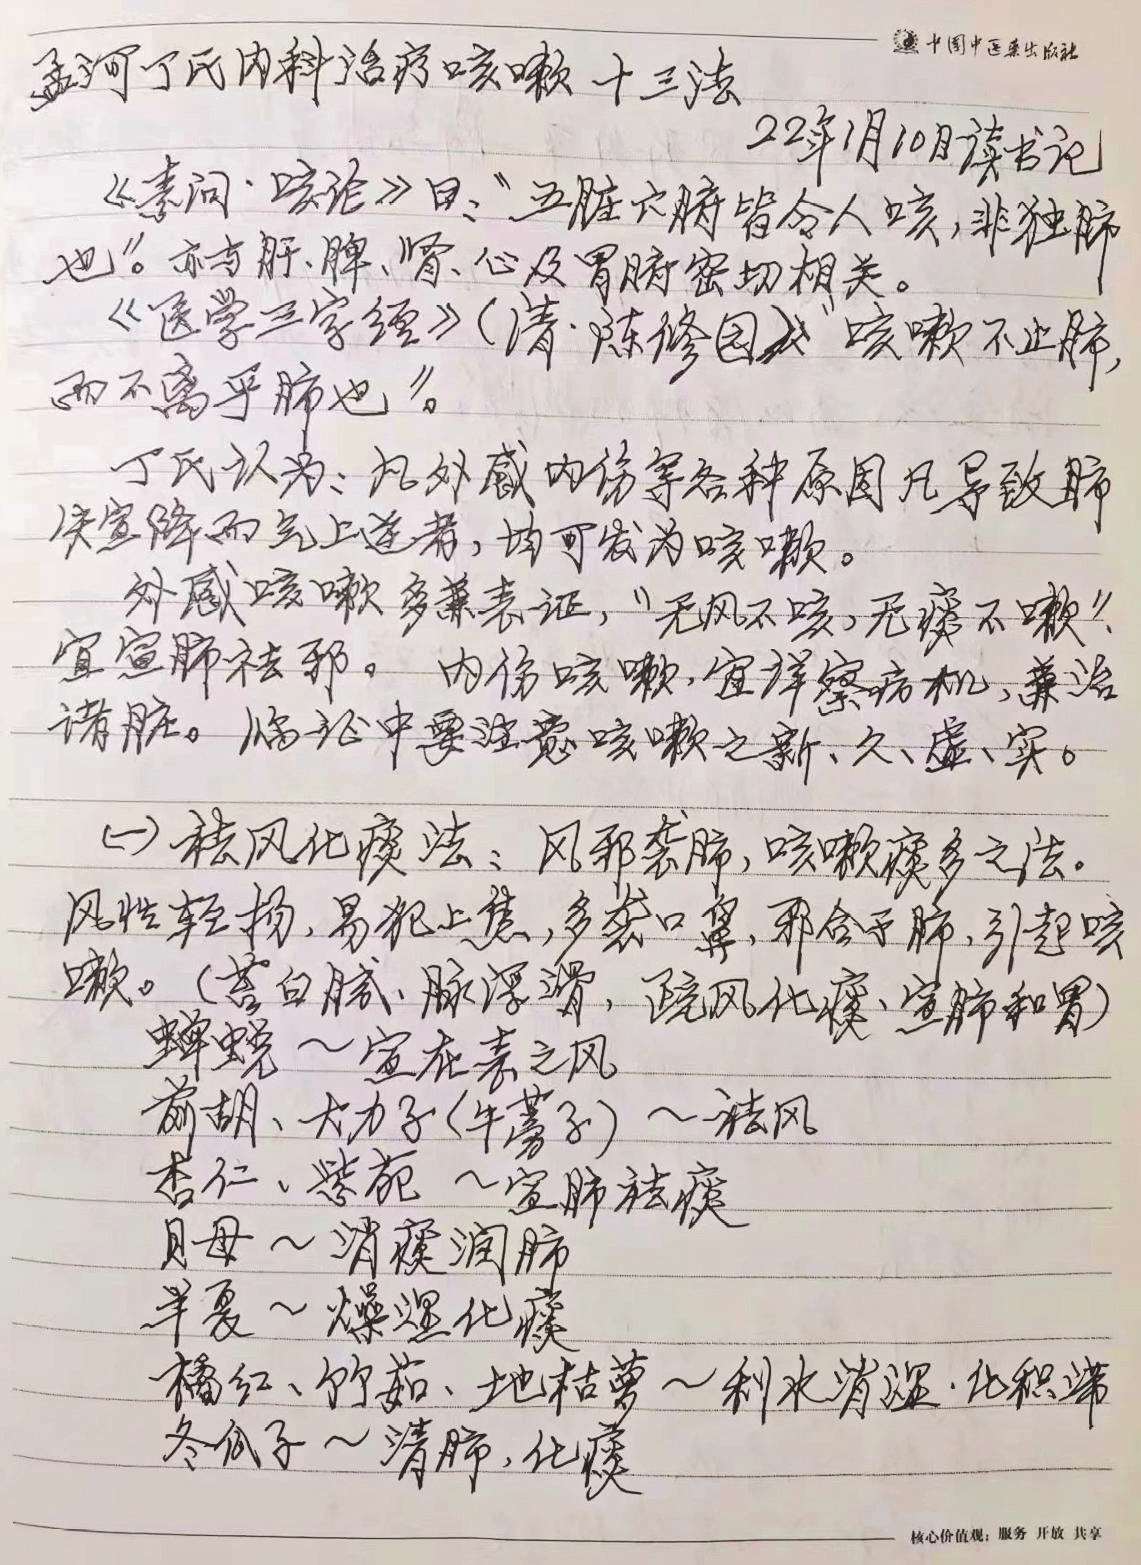 中国中医药出版社
孟河丁氏内科治疗咳嗽十三法
22年1月10日读书记
《素问·咳论》曰:"五脏六腑皆令人咳,非独肺
也"。亦与肝、脾、肾、心及胃腑密切相关。
《医学三字经》(清·陈修园)"咳嗽不止肺,
而不离乎肺也"。
丁氏认为:凡外感内伤等各种原因凡导致肺
失宣降而气上逆者,均可发为咳嗽。
外感咳嗽多兼表证,"无风不咳,无痰不嗽"、
宜宣肺祛邪。内伤咳嗽,宜详察病机,兼治
诸脏。临证中要注意咳嗽之新、久、虚、实。
(一)祛风化痰法:风邪袭肺,咳嗽痰多之法。
风性轻扬,易犯上焦,多袭口鼻,邪合于肺,引起咳
嗽。(苔白腻、脉浮滑,疏风化痰、宣肺和胃)
蝉蜕~宣在表之风
前胡、大力子(牛蒡子)~祛风
杏仁、紫菀~宣肺祛痰
贝母~消痰润肺
半夏~燥湿化痰
橘红、竹茹、地枯萝~利水消湿·化积滞
冬瓜子~清肺,化痰
核心价值观:服务 开放 共享